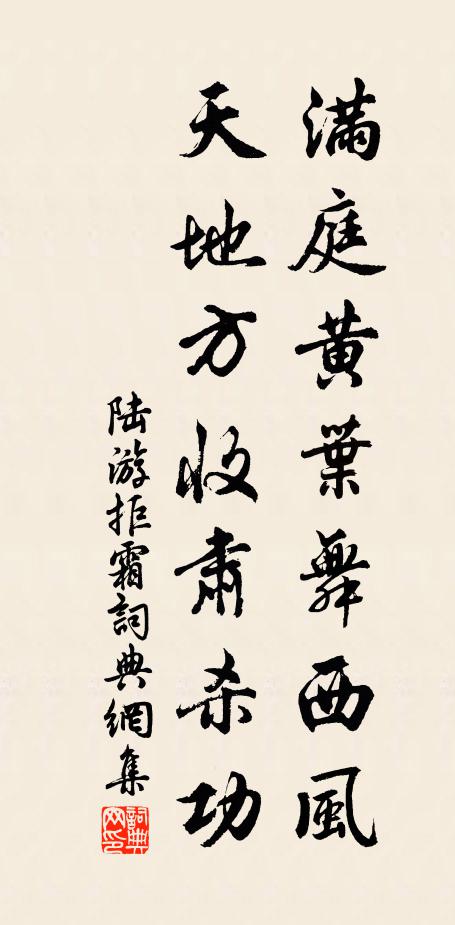 满庭黄葉舞西風
天地方收肅杀功
陆游拒霜詞典網集
詞典網印